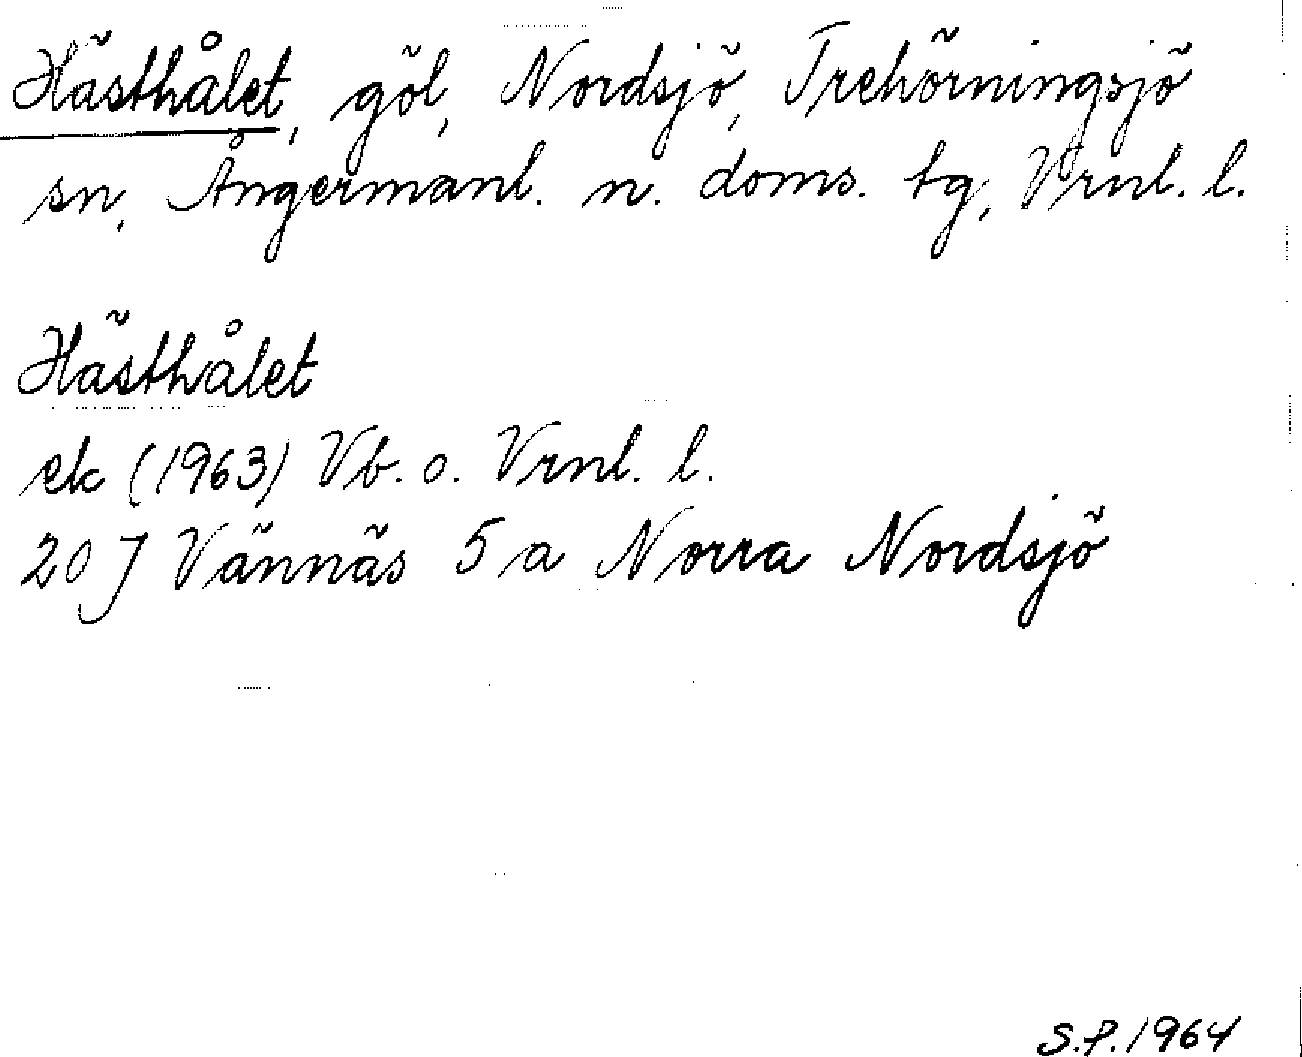 Hästhålet, göl, Nordsjö, Trehörningsjö
sn, Ångermanl. n. doms. tg, Vrnl. l.
Hästhålet
ek (1963) Vb. o. Vrnl. l.
20 J Vännäs 5 a Norra Nordsjö
S.P. 1964